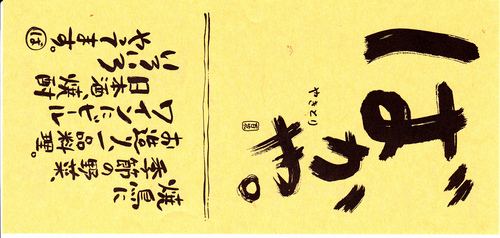 ばかや。
やきとり
焼鳥に
季節の野菜、
お造り、一品料理。
ワインにビール
日本酒、焼酎
いろいろ
やってます。
ば